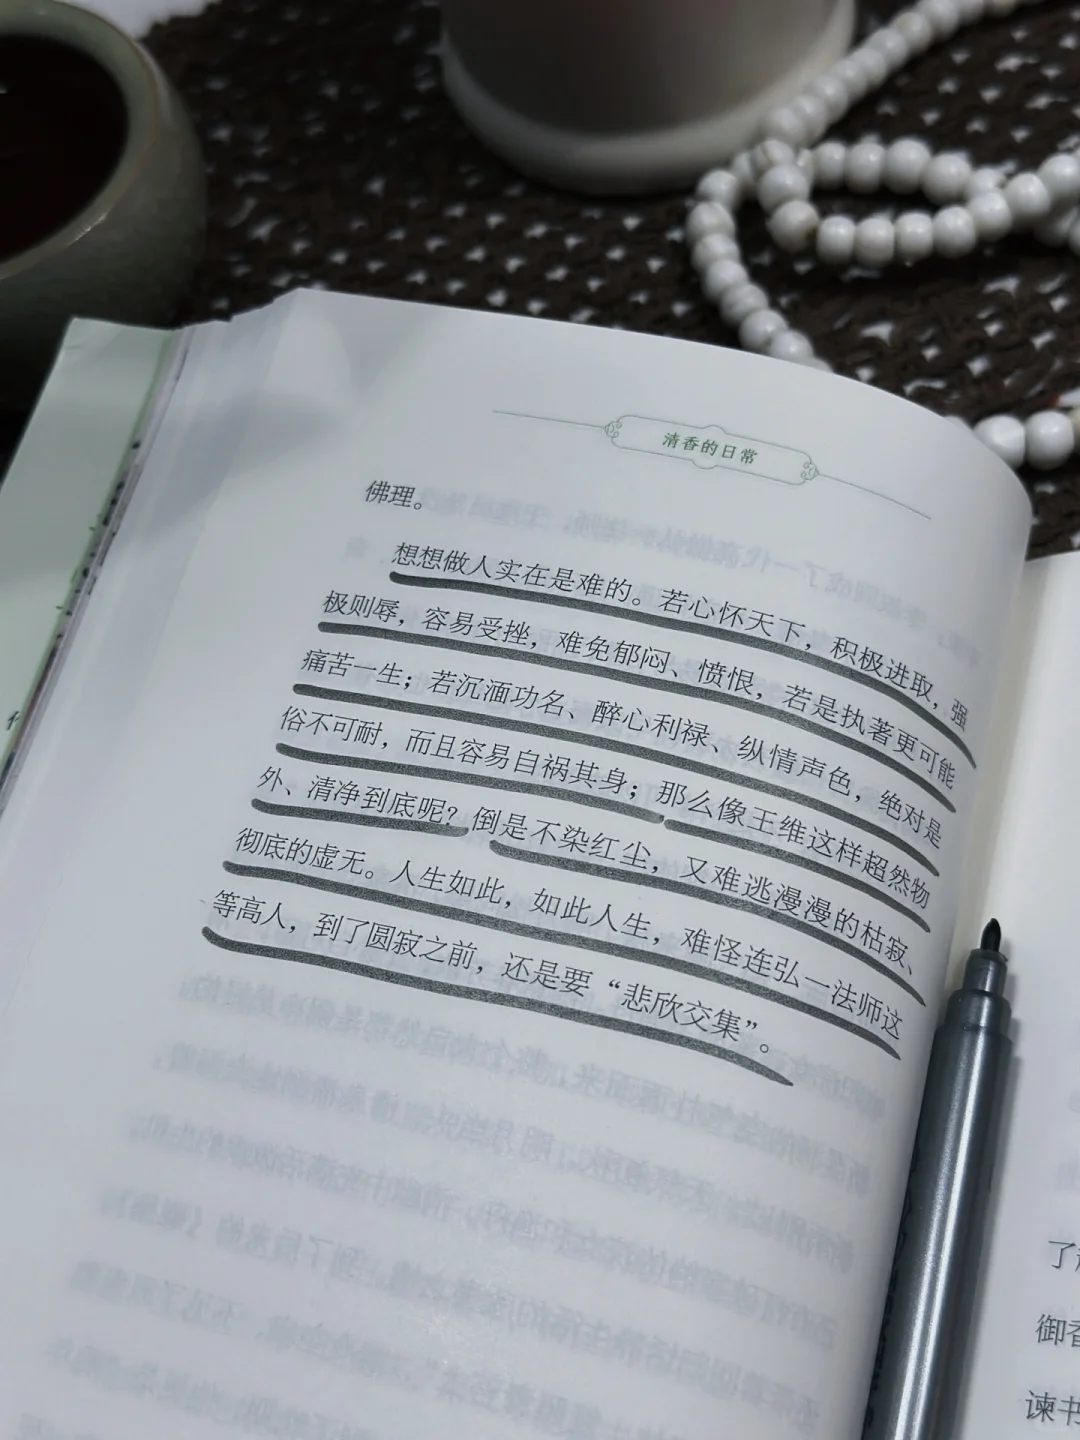 清香的日常
佛理。
想想做人实在是难的。若心怀天下，积极进取，强
极则辱，容易受挫，难免郁闷、愤恨，若是执著更可能
痛苦一生；若沉湎功名、醉心利禄、纵情声色，绝对是
俗不可耐，而且容易自祸其身；那么像王维这样超然物
外、清净到底呢？倒是不染红尘，又难逃漫漫的枯寂、
彻底的虚无。人生如此，如此人生，难怪连弘一法师这
等高人，到了圆寂之前，还是要“悲欣交集”。
御香
谏书